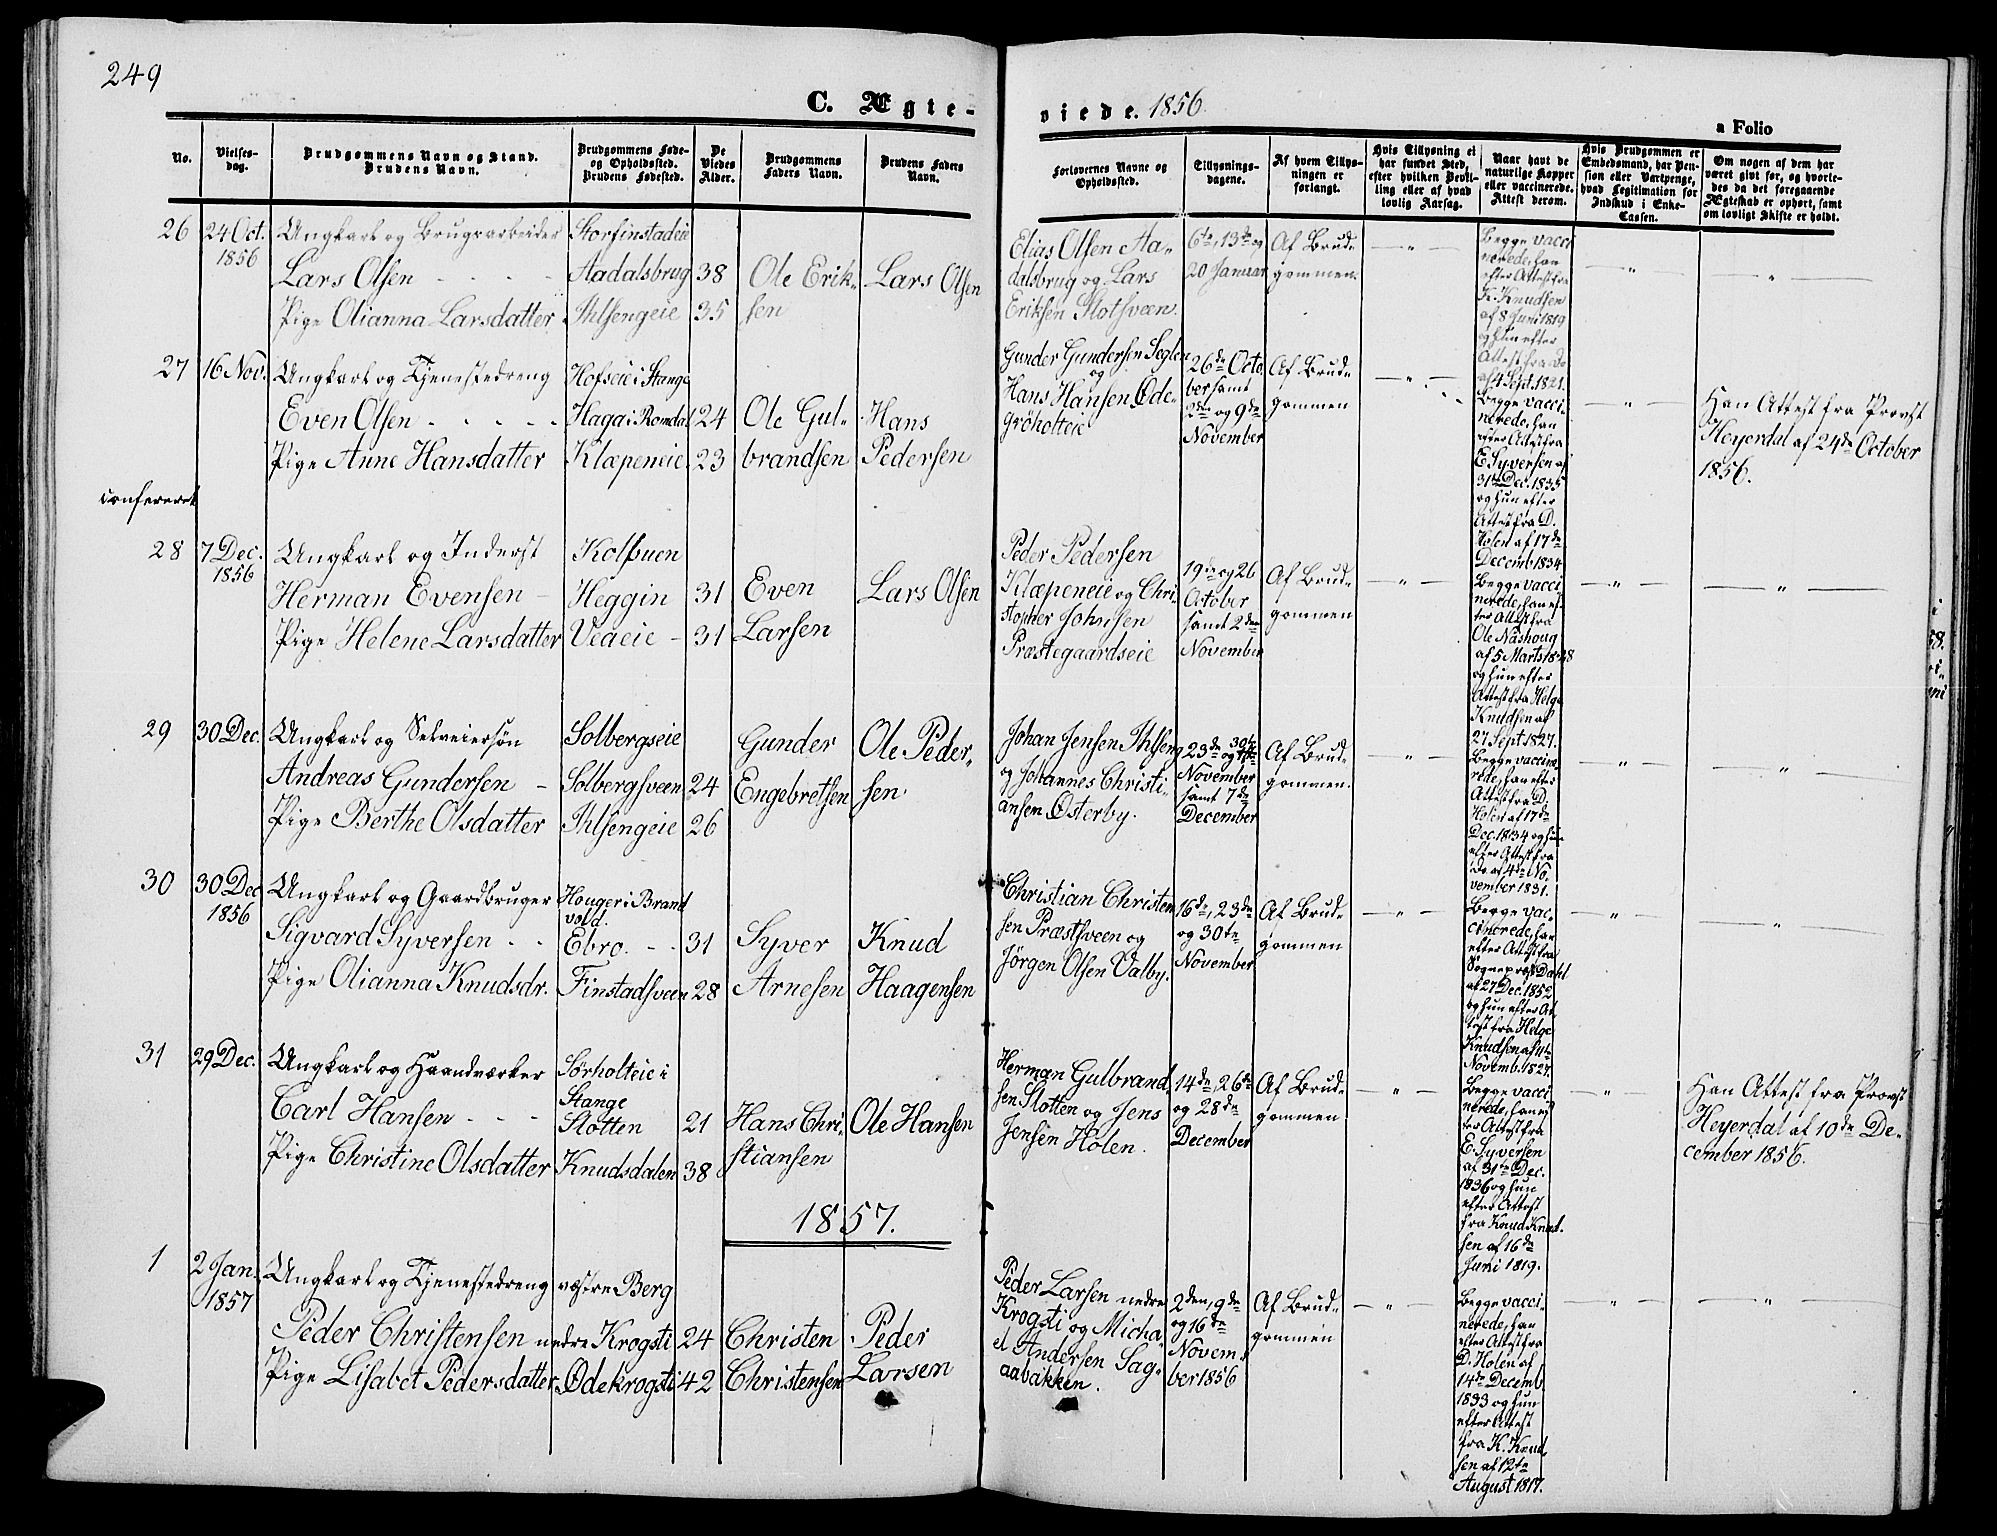 249
C. Ægte-
viede. 1856.
a Folio
No.
Vielses-
dag.
Brudgommens Navn og Stand.
Brudens Navn.
Brudgommens Føde-
og Opholdssted.
Brudens Fødested.
De
Viedes
Alder.
Brudgommens
Faders Navn.
Brudens Faders
Navn.
Forlovernes Navne og
Opholdssted.
Tillysnings-
dagene.
Af hvem Tillys-
ningen er
forlangt.
Hvis Tillysning ei
har fundet Sted,
efter hvilken Bevil-
ling eller af hvad
lovlig Aarsag.
Naar havt de
naturlige Kopper
eller vaccinerede.
Attest derom.
Hvis Brudgommen er
Embedsmand, har Pen-
sion eller Vartpenge,
hvad Legitimation for
Indskud i Enke-
Cassen.
Om nogen af dem har
været givt før, og hvorle-
des da det foregaaende
Ægteskab er ophørt, samt
om lovligt Skifte er holdt.
26
24 Oct.
1856
Ungkarl og Brugsarbeider
Lars Olsen
Pige Olianna Larsdatter
Storfinstadeie
Aadalsbrug
Ihlsengeie
38
35
Ole Erik-
sen
Lars Olsen
Elias Olsen Aa-
dalsbrug og Lars
Eriksen Slotsveen.
6te, 13de og
20 Januar
Af Brud-
gommen.
Begge vacci
nerede, han
efter Attest fra
K. Knudsen
af 8 Juni 1819
og hun efter
Attest fra do
af 4 Sept. 1821.
27
16 Nov.
Ungkarl og Tjenestedreng
Even Olsen
Pige Anne Hansdatter
Hofseie i Stange
Haga i Romdal
Klæpeneie
24
23
Ole Gul-
brandsen
Hans
Pedersen
Gunder Gundersen Seglen
og
Hans Hansen Øde-
grøholteie
26de Octo-
ber samt
2den og 9de
November
Af Brud-
gommen
Begge vacci-
nerede, han
efter Attest fra
E. Syversen af
31te Dec. 1835
og hun efter
Attest fra D.
Holen af 17de
Decemb 1834
Han Attest fra Provst
Heyerdal af 24de October
1856.
confereret
28
7 Dec.
1856
Ungkarl og Inderst
Herman Evensen
Pige Helene Larsdatter
Kolsuen
Heggin
Veaeie
31
31
Even
Larsen
Lars Olsen
Peder Pedersen
Klæpeneie og Chri-
stopher Johnsen
Præstegaardseie
19de og 26
October
samt 2den
November
Af Brud-
gommen
Begge vacci
nerede, han ef-
ter Attest fra
Ole Nashoug
af 5 Marts 1828
og hun efter
Attest fra Helge
Knudsen af
27 Sept 1827.
29
30 Dec.
Ungkarl og Selveiersøn
Andreas Gundersen
Pige Berthe Olsdatter
Solbergseie
Solbergsveen
Ihlsengeie
24
26
Gunder
Engebretsen
Ole Peder-
sen
Johan Jensen Ihlseng
og Johannes Christi-
ansen Østerby.
23de og 30te
November
samt 7de
December
Af Brud-
gommen.
Begge vaccine
rede, han efter
Attest fra D.
Holen af 17de
Dec. 1834 og hun
efter Attest fra
do af 4de No-
vember 1831.
30
30 Dec
1856
Ungkarl og Gaardbruger
Sigvard Syversen
Pige Olianna Knudsdr.
Houger i Brand
vold.
Ebro.
Finstadsveen
31
28
Syver
Arnesen
Knud
Haagensen
Christian Christen
sen Præstsveen og
Jørgen Olsen Valby.
16de, 23de
og 30te
November
Af Brud-
gommen
Begge vac-
cinerede, han
efter Attest fra
Sognepræst Dahl
af 27 Dec. 1852
og hun efter At-
test fra Helge
Knudsen af 11te
Novemb. 1827.
31
29 Dec.
Ungkarl og Haandværker
Carl Hansen
Pige Christine Olsdatter
Sørholteie i
Stange
Slotten
Knudsdalen
21
38
Hans Chri-
stiansen
Ole Hansen
Herman Gulbrand-
sen Slotten og Jens
Jensen Holen.
14de, 26de
og 28de
December
Af Brud-
gommen
Begge vacci
nerede, han ef-
ter Attest fra
E. Syversen
af 31te Dec.
1836 og hun
efter Attest
fra Knud Knud-
sen af 16de
Juni 1819.
Han Attest fra Provst
Heyerdal af 10de De-
cember 1856.
1857.
1
2 Jan.
1857
Ungkarl og Tjenestedreng
Peder Christensen
Pige Lisabet Pedersdatter
vestre Berg
nedre Krogsti
Ødekrogsti
24
42
Christen
Christensen
Peder
Larsen
Peder Larsen nedre
Krogsti og Micha-
el Andersen Sag-
aabakken.
2den, 9de
og 16de
Novem-
ber 1856
Af Brud-
gommen
Begge vacci-
nerede, han
efter Attest fra
D. Holen af
14de Decemb
1833 og hun
efter Attest
fra K. Knud-
sen af 12te
August 1817.